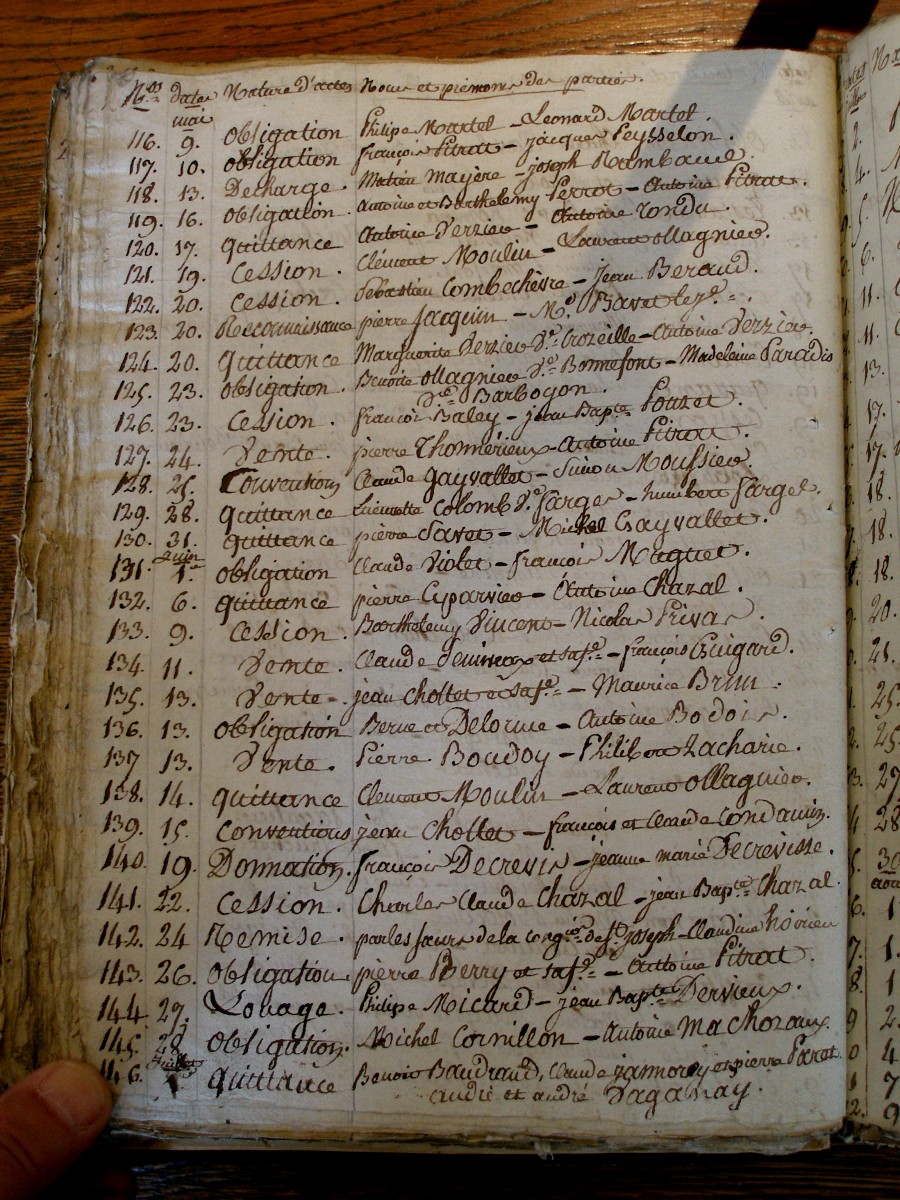 Nos dates Nature d'actes Noms et prénoms des parties.
mai
116. 9. obligation Philipe Martel - Leonard Martel.
117. 10. obligation françois Pitrat - jacques Peysselon.
118. 13. Decharge. Matieu mayère - joseph Rambaud.
119. 16. obligation. antoine et Barthelemy Perrot - Antoine Pitrat.
120. 17. quittance Antoine Verrier - Antoine rondu.
121. 19. Cession. Clément Moulin - Laurent ollagnier.
122. 20. Cession. Sébastien Combechèvre - Jean Beraud.
123. 20. Reconnaissance pierre Jacquin - Mr. Bavat
124. 20. quittance Marguerite Verrier Ve. Crozeille - Antoine Verrier.
125. 23. obligation. Benoite ollagnier Ve. Bonnefont - Madeleine Paradis
Ve. Barbogon.
126. 23. Cession. françois Baley - jean Bapte. Pouzet.
127. 24. Vente. pierre Thomérieux - Antoine Pitrat.
128. 25. Conventions Claude gayvallet - Simon Moussier.
129. 28. quittance Colomb Ve. farges - humbert farges.
130. 31. quittance pierre Savet - Michel Gayvallet.
juin
131. 1. obligation Claude Violet - françois Muguet.
132. 6. quittance pierre Eparvier - Antoine Chazal.
133. 9. Cession. Barthelemy Vincent - Nicolas Privas.
134. 11. Vente. Claude et sa fe. - françois Guigard.
135. 13. Vente - jean chollet et sa fe. - Maurice Brun.
136. 13. obligation Berne et Delorme - Antoine Bodois.
137 13. Vente. Pierre Boudoy - Philibert Zacharie.
138. 14. quittance Clement Moulin - Laurent ollagnier.
139. 15. conventions jean Chollet - françois et Claude Condamin.
140. 19. Donnation. françois Decrevis - jeanne marie Decrevisse.
141. 22. Cession. Charles Claude Chazal - jean Bapte. Chazal.
142. 24 Remise. par les sœurs de la congion. de St. joseph - Claudine
143. 26. obligation pierre Berry et sa fe. - Antoine Pitrat.
144 27. Louage. Philipe Micard - jean Bapte Dervieux.
145. 28 obligation. Michel Cornillon - Antoine Machozaux.
juillet
146. 1 quittance Benoit Baudrand, Claude jamorey et pierre Parot
andré et andré Vaganay.